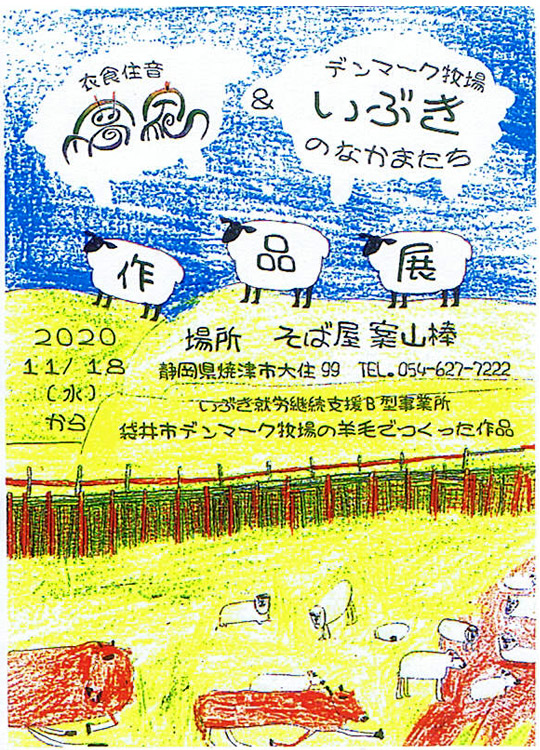 衣食住音
&
デンマーク牧場
いぶき
のなかまたち
作品展
2020
11/18
(水)
から
場所 そば屋 案山棒
静岡県焼津市大住99 TEL.054-627-7222
いぶき就労継続支援B型事業所
袋井市デンマーク牧場の羊毛でつくった作品